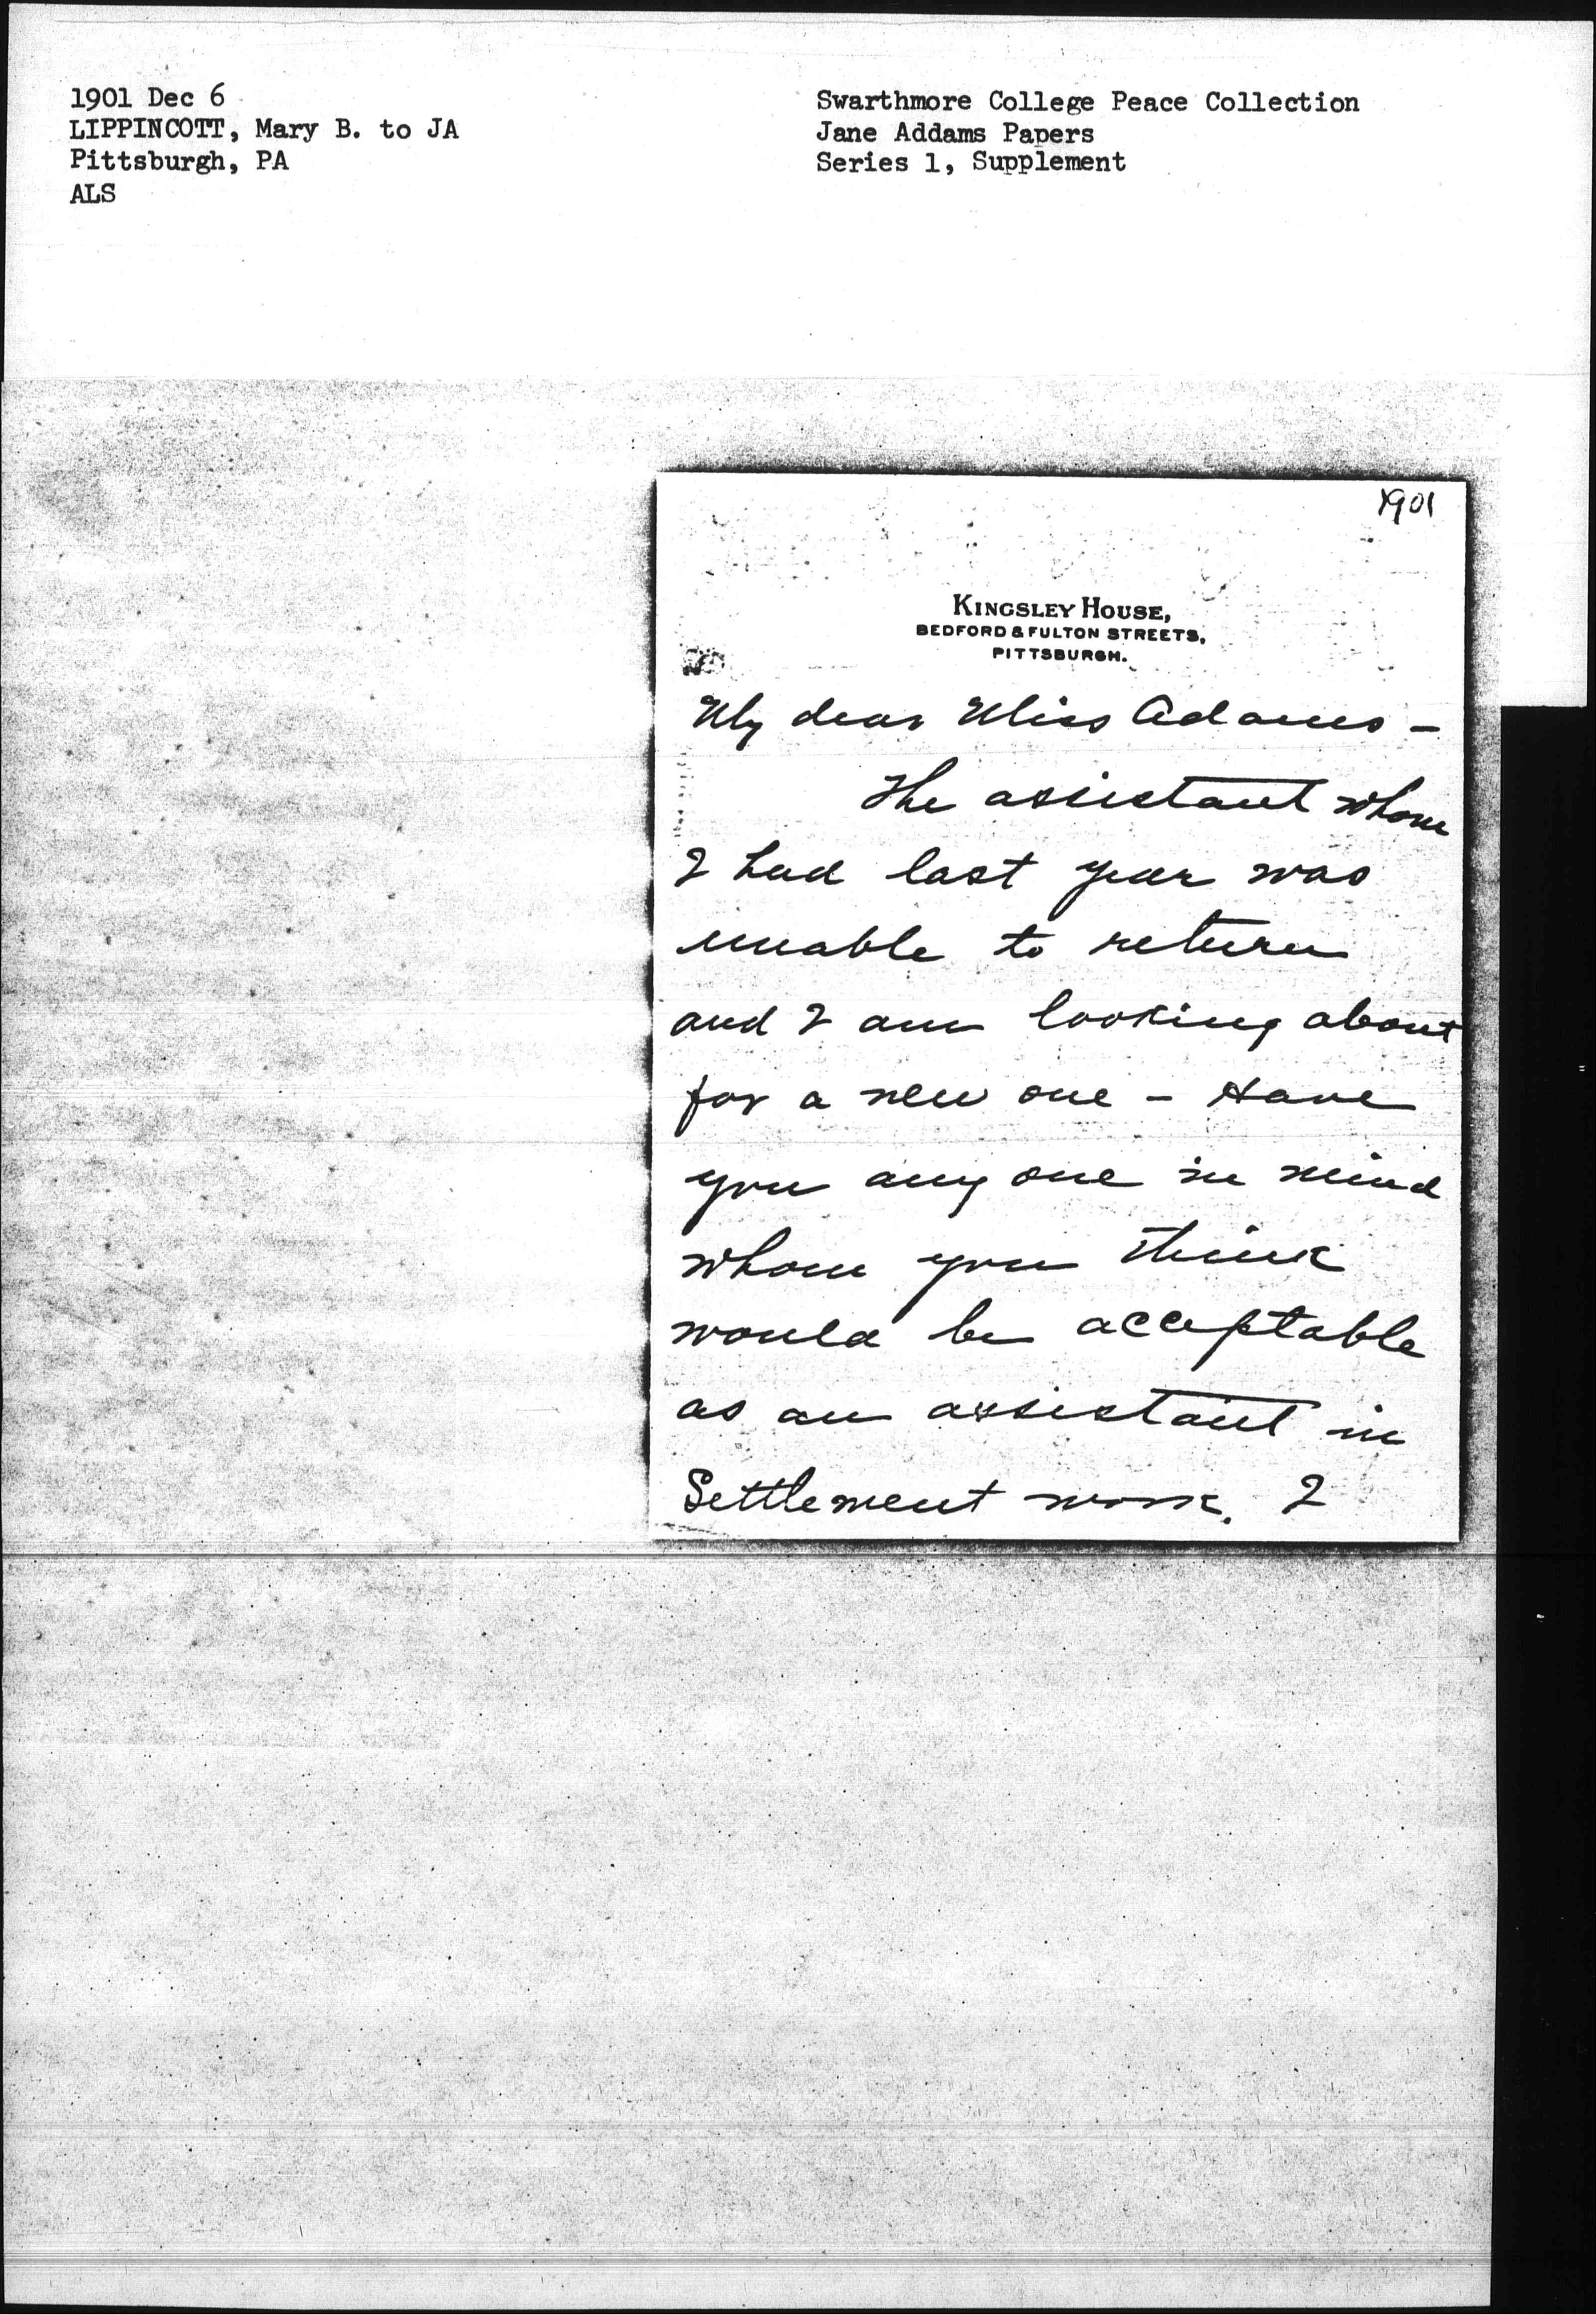 1901 Dec 6
LIPPINCOTT, Mary B. to JA
Pittsburgh, PA
ALS
Swarthmore College Peace Collection
Jane Addams Papers
Series 1, Supplement
1901
KINGSLEY HOUSE,
BEDFORD & FULTON STREETS,
PITTSBURGH.
My dear Miss Adams –
The assistant whom
I had last year was
unable to return
and I am looking about
for a new one – Have
you any one in mind
whom you think
would be acceptable
as an assistant in
Settlement work. I